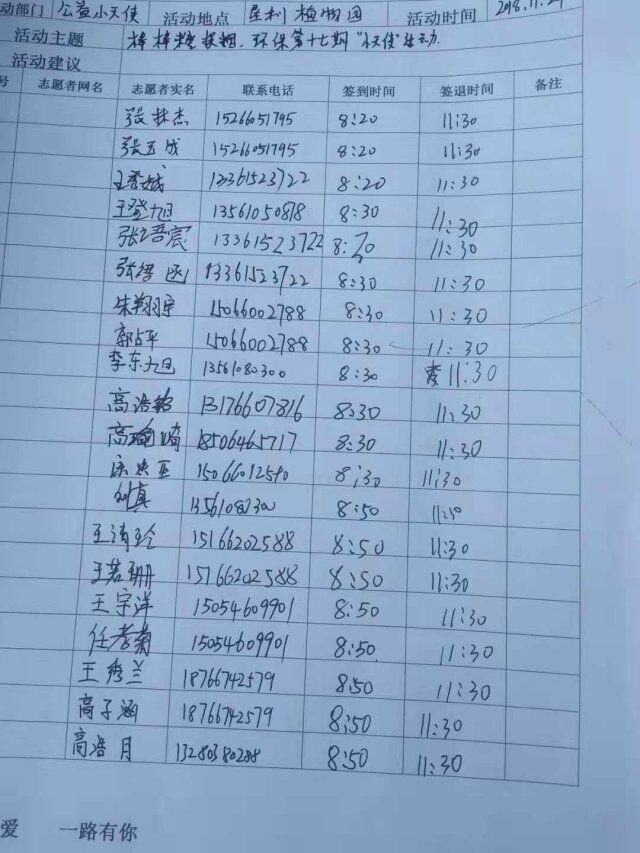 动部门 公益小天使 活动地点 植物园 活动时间 2018.11.24
活动主题 棒棒糖换烟.环保第十七期"小天使"活动.
活动建议
号 志愿者网名 志愿者实名 联系电话 签到时间 签退时间 备注
张 杰 15266051795 8:20 11:30
张玉成 15266051795 8:20 11:30
王秀娥 13361523722 8:20 11:30
王登旭 13561050818 8:30 11:30
张语宸 13361523722 8:20 11:30
张 函 13361523722 8:30 11:30
朱翔宇 15066002788 8:30 11:30
郭占平 15066002788 8:30 11:30
李东旭 13561080300 8:30 11:30
高浩铭 13176607816 8:30 11:30
高 崎 18506465717 8:30 11:30
8:30 11:30
刘真 8:50
王清玲 15166202588 8:50 11:30
王若珊 15166202588 8:50 11:30
王宇洋 15054609901 8:50 11:30
任孝菊 15054609901 8:50 11:30
王秀兰 18766742579 8:50 11:30
高子涵 18766742579 8:50 11:30
高浩月 13280380288 8:50 11:30
爱 一路有你